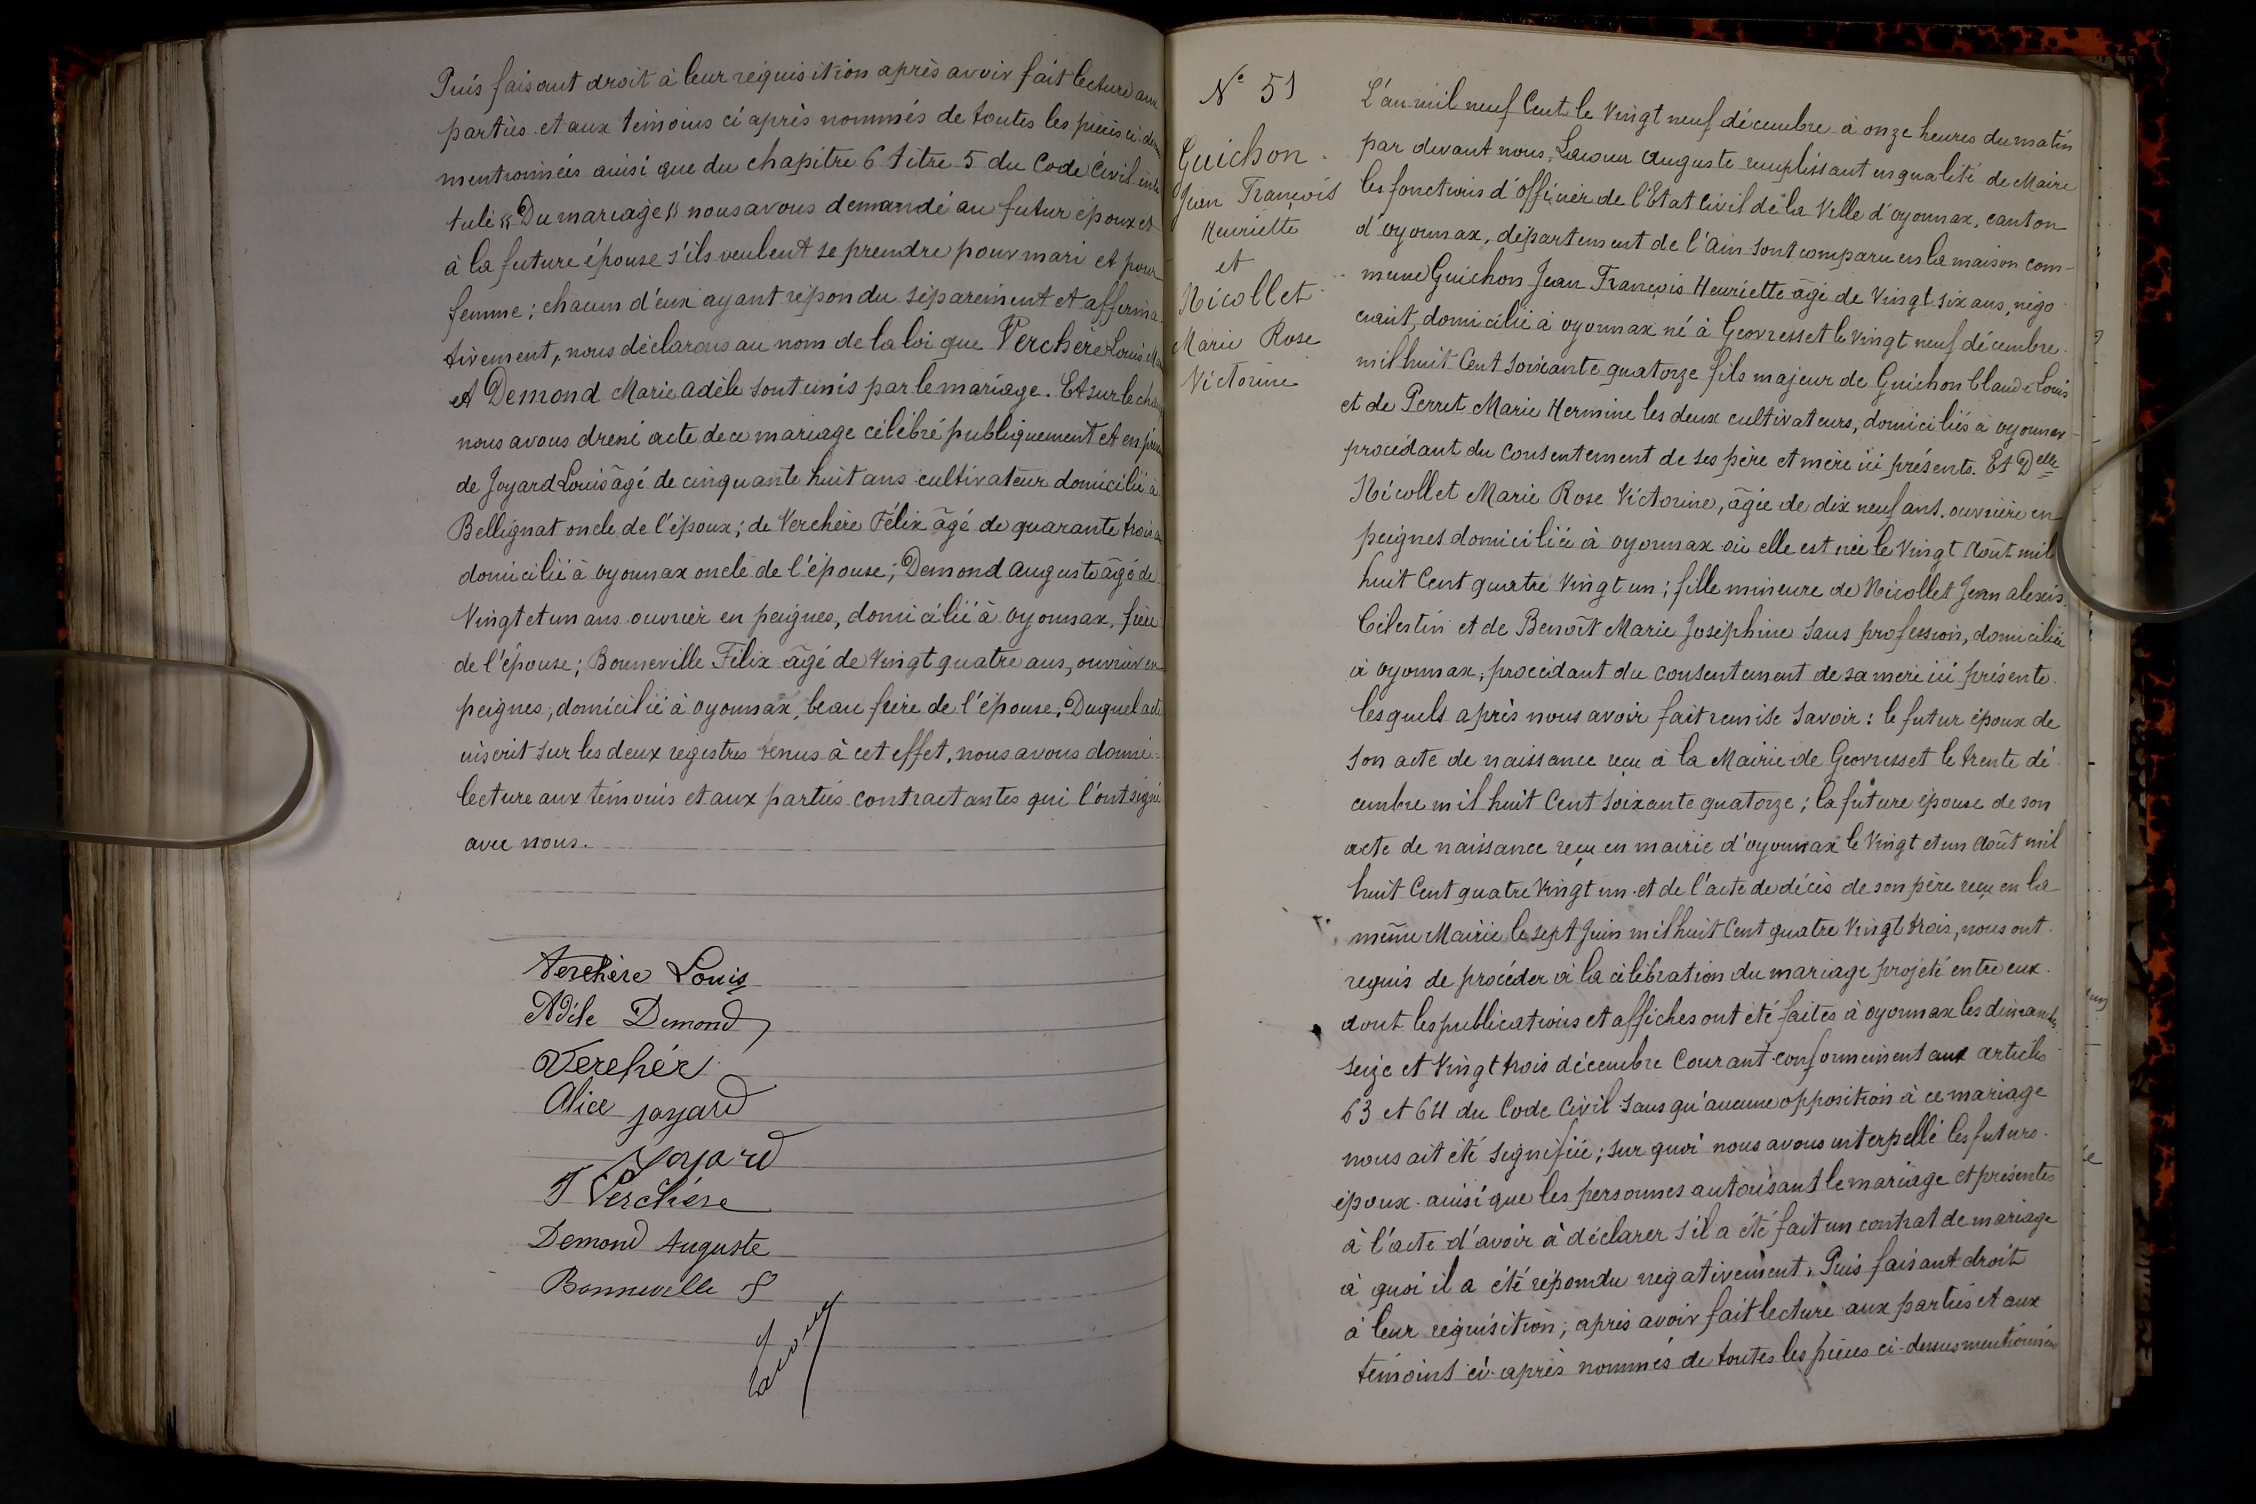 Puis faisant droit à leur réquisition après avoir fait lecture aux
parties et aux témoins ci après nommés de toutes les pièces ci-dessus
mentionnées ainsi que du chapitre 6 titre 5 du Code Civil inti
tulé « Du mariage » nous avons demandé au futur époux et
à la future épouse s'ils veulent se prendre pour mari et pour
femme ; chacun d'eux ayant répondu séparément et affirma
tivement, nous déclarons au nom de la loi que Verchère Louis
et Demond Marie Adèle sont unis par le mariage. Et sur le champ
nous avons dressé acte de ce mariage célébré publiquement et en
de Joyard Louis âgé de cinquante huit ans cultivateur domicilié à
Bellignat oncle de l'époux ; de Verchère Félix âgé de quarante trois
domicilié à Oyonnax oncle de l'épouse ; Demond Auguste âgé de
Vingt et un ans ouvrier en peignes, domicilié à Oyonnax, frère
de l'épouse ; Bonneville Félix âgé de Vingt quatre ans, ouvrier en
peignes, domicilié à Oyonnax, beau frère de l'épouse. Duquel acte
inscrit sur les deux registres tenus à cet effet, nous avons donné
lecture aux témoins et aux parties contractantes qui l'ont signé
avec nous.
Verchère Louis
Adèle Demond
Verchér
Alice Joyard
Joyard
F Verchère
Demond Auguste
Bonneville F
N° 51
Guichon
Jean François
Henriette
et
Nicollet
Marie Rose
Victorine
L'an mil neuf Cent le Vingt neuf décembre à onze heures du matin
par devant nous, Auguste remplissant en qualité de Maire
les fonctions d'Officier de l'Etat Civil de la Ville d'Oyonnax, canton
d'Oyonnax, département de l'Ain sont comparu en la maison com-
mune Guichon Jean François Henriette âgé de Vingt six ans, négo
ciant, domicilié à Oyonnax né à Géovresset le Vingt neuf décembre
mil huit Cent soixante quatorze fils majeur de Guichon Claude Louis
et de Perret Marie Hermine les deux cultivateurs, domiciliés à Oyonnax
procédant du consentement de ses père et mère ici présents. Et Delle
Nicollet Marie Rose Victorine, âgée de dix neuf ans, ouvrière en
peignes domiciliée à Oyonnax où elle est née le Vingt Août mil
huit Cent quatre Vingt un ; fille mineure de Nicollet Jean Alexis
Célestin et de Benoît Marie Joséphine sans profession, domiciliée
à Oyonnax, procédant du consentement de sa mère ici présente.
lesquels après nous avoir fait remise savoir : le futur époux de
son acte de naissance reçu à la Mairie de Géovresset le trente dé
cembre mil huit Cent soixante quatorze ; la future épouse de son
acte de naissance reçu en mairie d'Oyonnax le Vingt et un Août mil
huit Cent quatre Vingt un et de l'acte de décès de son père reçu en la
même Mairie le sept Juin mil huit Cent quatre Vingt trois, nous ont
requis de procéder à la célébration du mariage projeté entre eux
dont les publications et affiches ont été faites à Oyonnax les dimanches
seize et Vingt trois décembre Courant conformément aux articles
63 et 64 du Code Civil sans qu'aucune opposition à ce mariage
nous ait été signifiée ; sur quoi nous avons interpellé les futurs
époux ainsi que les personnes autorisant le mariage et présentes
à l'acte d'avoir à déclarer s'il a été fait un contrat de mariage
à quoi il a été répondu négativement. Puis faisant droit
à leur réquisition, après avoir fait lecture aux parties et aux
témoins ci-après nommés de toutes les pièces ci-dessus mentionnées